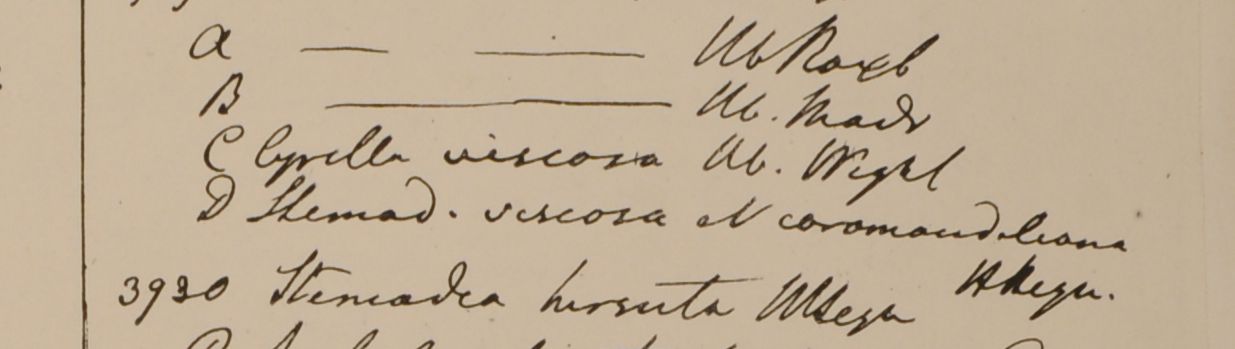 A — —— Hb Roxb
B —— Hb. Madr
C Cyrilla viscosa Hb. Wight
D Stemod. viscosa et coromandeliana
H Heyn.
3930 Stemodia hirsuta Heyn